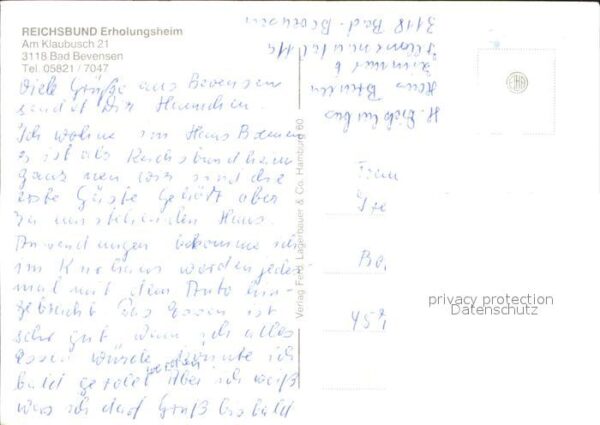 REICHSBUND Erholungsheim
Am Klaubusch 21
3118 Bad Bevensen
Tel. 05821 / 7047
Viele Grüße aus Bevensen
sendet Dir Hannchen.
Ich wohne im Haus
es ist als Reichsbundhaus
ganz neu wir sind die
erste Gäste gehört aber
zu umstehenden Haus.
Anwendungen bekomme ich
im Kurhaus werden jedes
mal mit dem Auto hin-
gebracht Das Essen ist
sehr gut, wenn ich alles
essen würde könnte ich
bald gerollt werden Aber ich weiß
was ich darf Gruß bis bald
Haus
Zimmer 6
3118 Bad-Bevensen
Verlag Ferd. Lagerbauer & Co. Hamburg 60
Frau
Be
457
privacy protection
Datenschutz